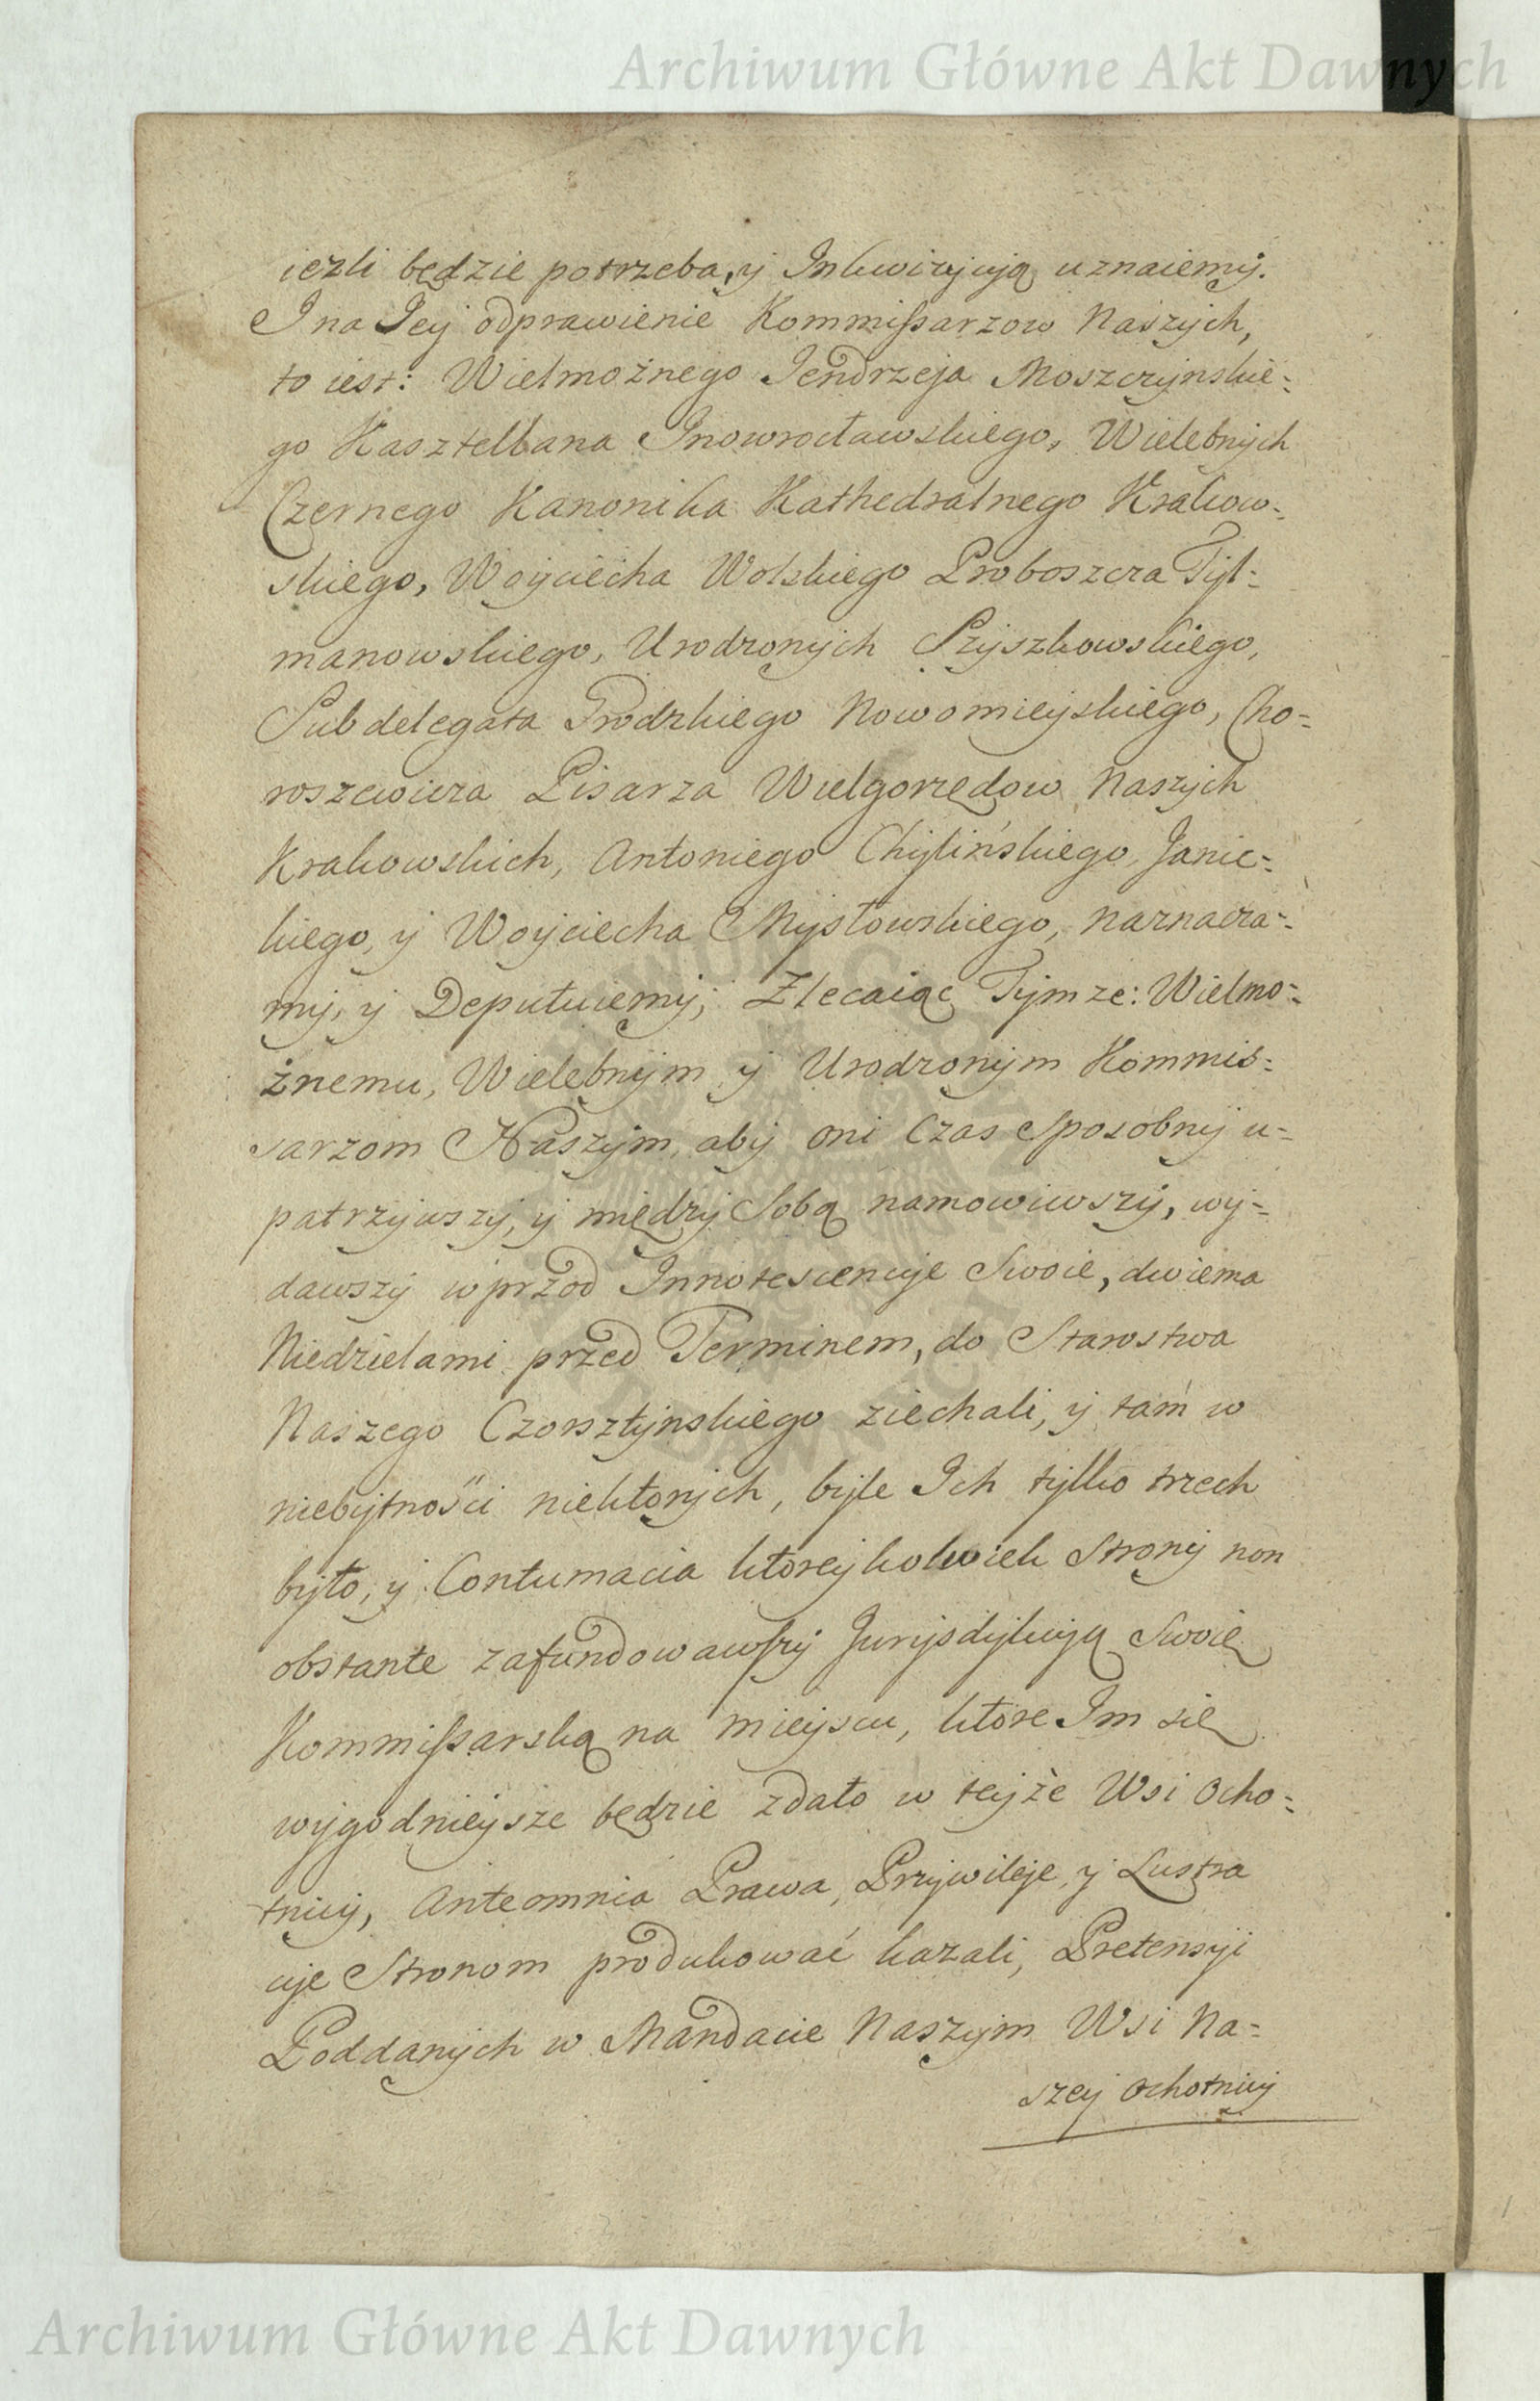 Archiwum Główne Akt Dawnych
iezli będzie potrzeba, y Inkwizycyą uznaiemy.
I na Jey odprawienie Kommissarzow Naszych,
to iest: Wielmożnego Jendrzeja Moszczynskie=
go Kasztellana Inowrocławskiego, Wielebnych
Czernego Kanonika Kathedralnego Krakow=
skiego, Woyciecha Wolskiego Proboszcza Tyl=
manowskiego, Urodzonych Szyszkowskiego,
Subdelegata Grodzkiego Nowomieyskiego, Cho=
roszewicza Pisarza Wielgorzędow Naszych
Krakowskich, Antoniego Chylińskiego, Janic=
kiego, y Woyciecha Mysłowskiego, naznacza=
my, y Deputuiemy; Zlecaiąc Tymze: Wielmo=
żnemu, Wielebnym y Urodzonym Kommis=
sarzom Naszym, aby oni Czas sposobny u=
patrzywszy, y między Sobą namowiwszy, wy=
dawszy wprzod Innotescencye Swoie, dwiema
Niedzielami przed Terminem, do Starostwa
Naszego Czorsztynskiego ziechali, y tam w
niebytności niektorych, byle Ich tylko trzech
było, y Contumacia ktoreykolwiek Strony non
obstante zafundowawszy Jurysdykcyą Swoię
Kommissarską na mieyscu, ktore Im się
wygodnieysze będzie zdało w teyże Wsi Ocho=
tnicy, Anteomnia Prawa, Przywileje, y Lustra
cye Stronom produkować kazali, Pretensyi
Poddanych w Mandacie Naszym Wsi Na=
szey Ochotnicy
Archiwum Główne Akt Dawnych